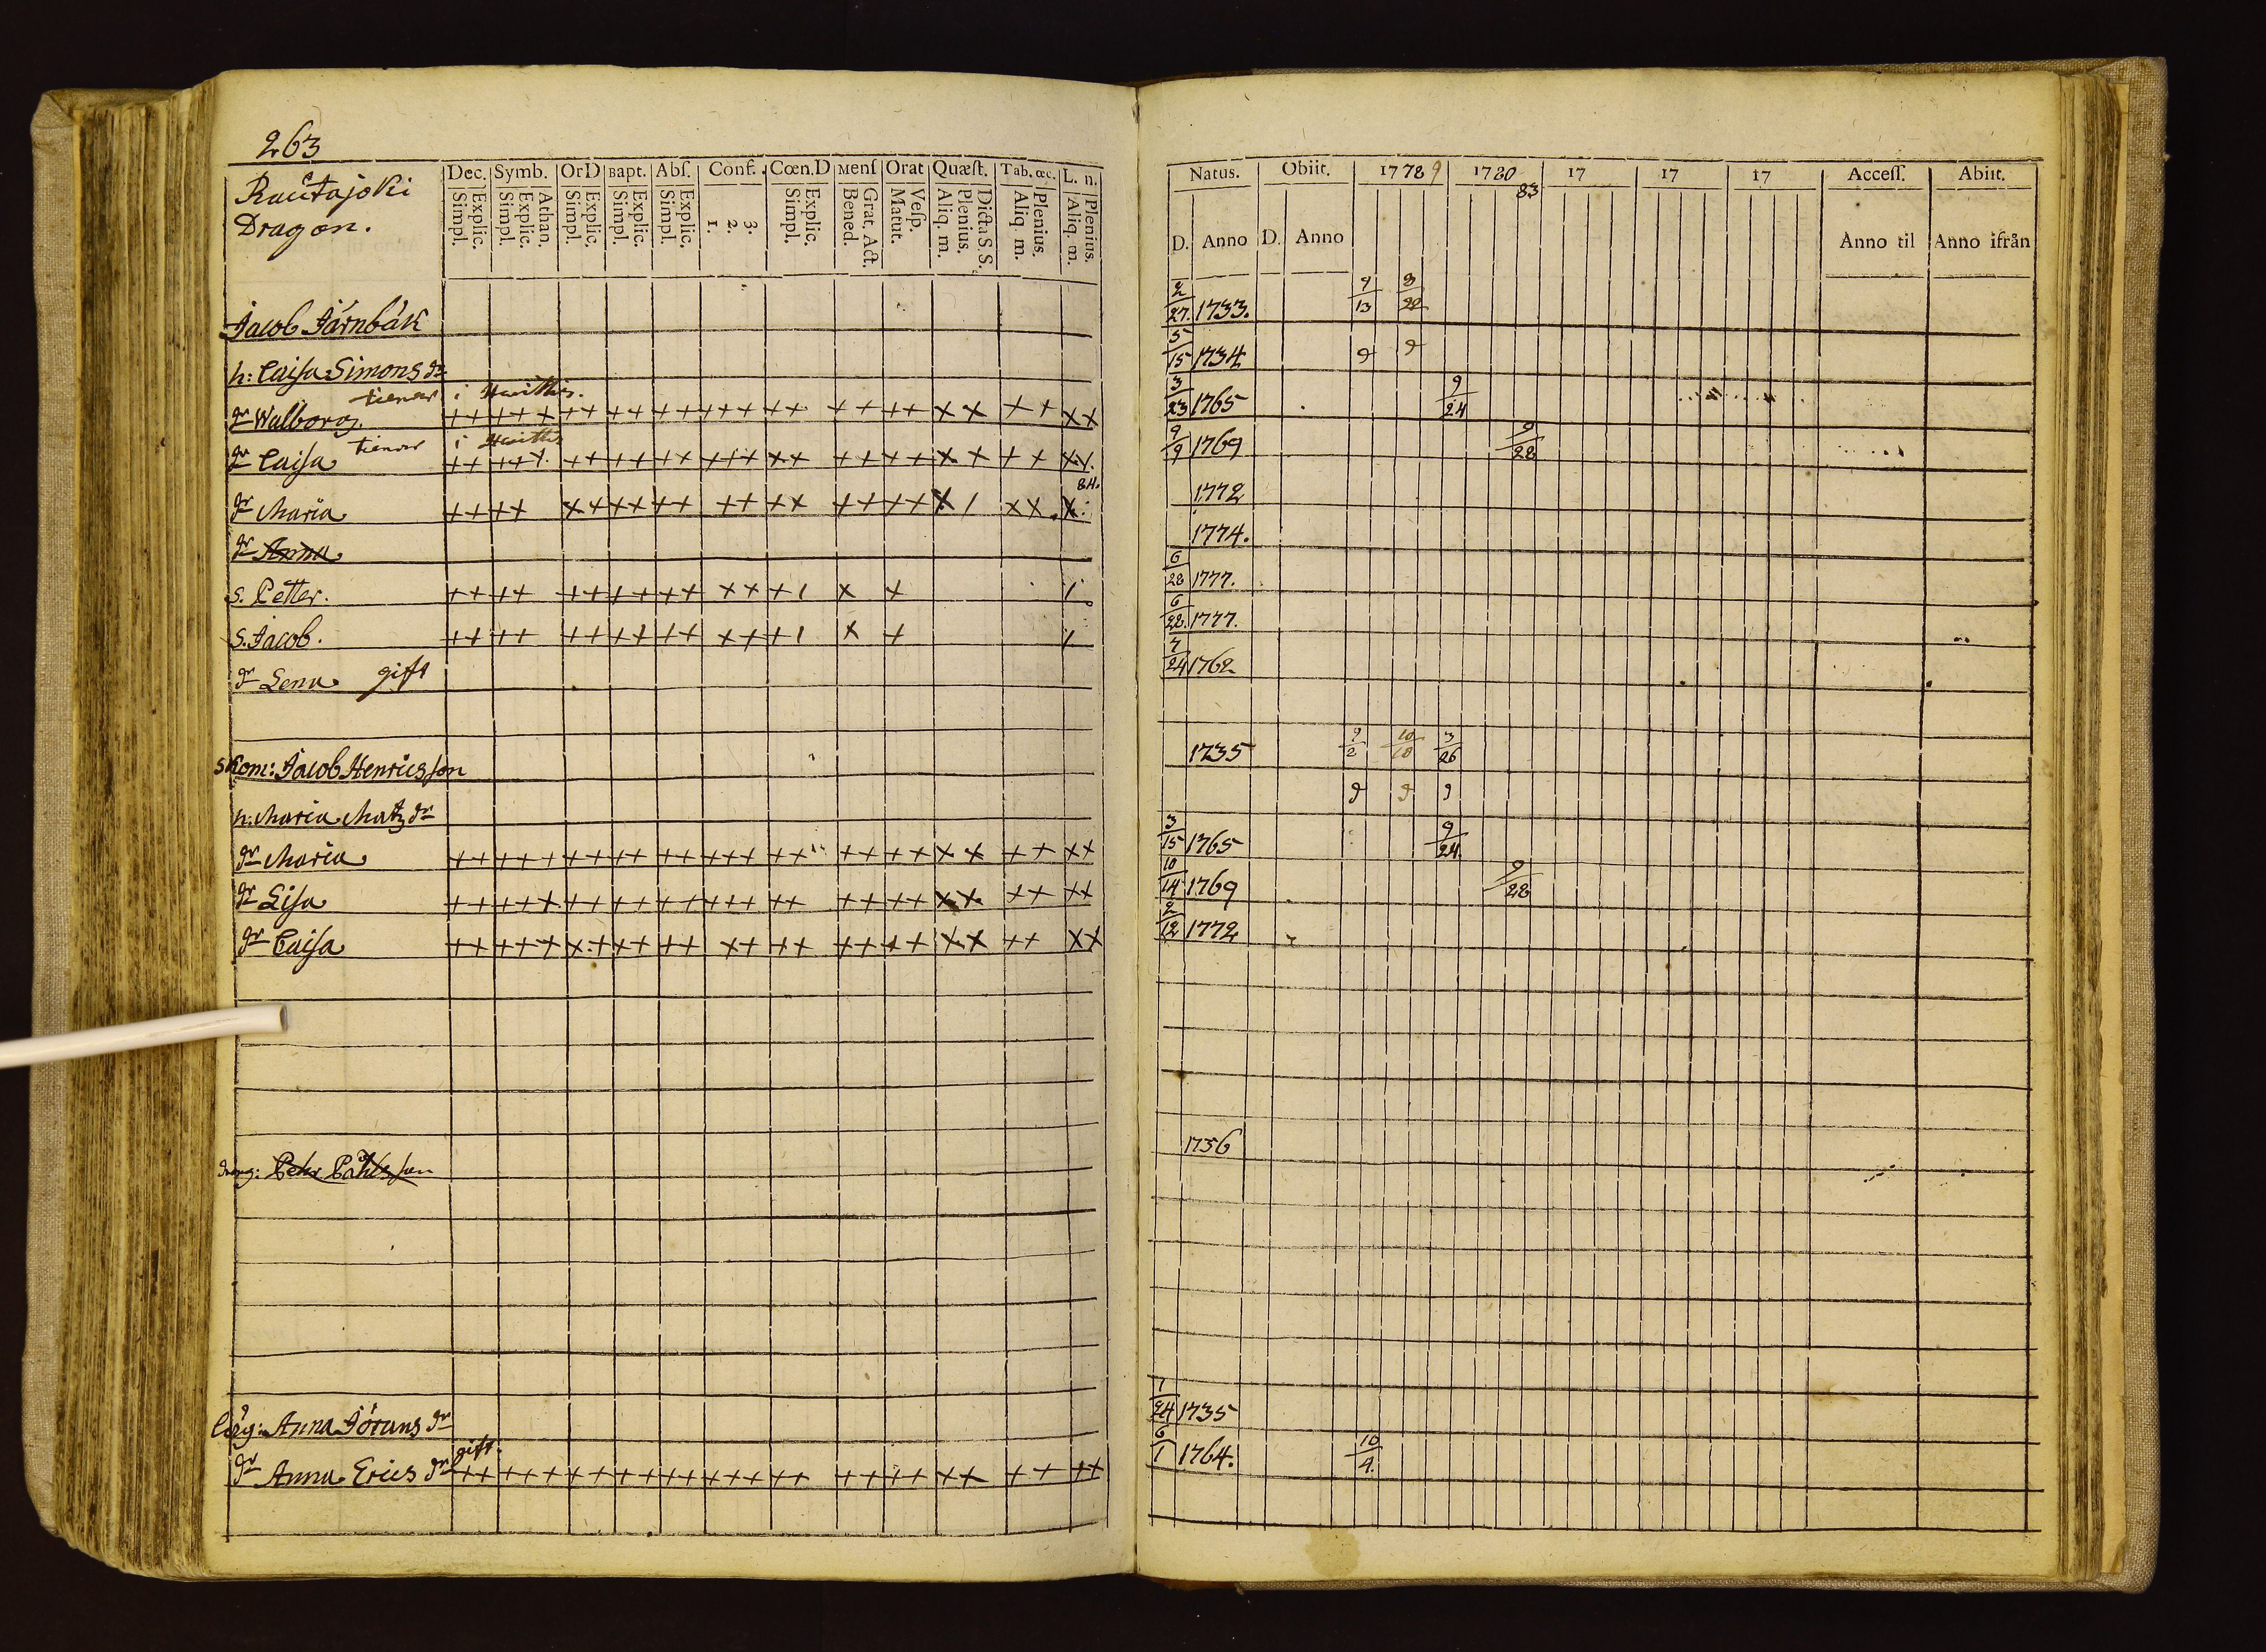 263
Rautajoki
Dragon.
Dec. Symb. OrD Bapt. Abſ. Conf. Cœn.D Menſ Orat Quæſt. Tab. œc. L. n.
Simpl. Explic. Simpl. Explic. Athan. Simpl. Explic. Simpl. Explic. Simpl. Explic. 1. 2. 3. Simpl. Explic. Bened. Grat. Act. Matut. Veſp. Aliq. m. Plenius. Dicta S. S. Aliq. m. Plenius. Aliq. m. Plenius.
Jacob Järnbäk
h: Caisa Simons dr
tienar i Hwittis.
dr Walborg. ++ +++ ++ ++ ++ +++ ++ ++ ++ ×× ×+ ××
tienar i Hwittis
dr Caisa ++ +++ ++ ++ ++ +++ ×× ++ ++ ×+ ++ ××.
84.
dr Maria ++ ++ ×+ ++ ++ ++ ×× ++ ++ × / ×× ×
dr Anna
s. Petter. ++ ++ ++ ++ ++ ×× + / × + /
s. Jacob. ++ ++ ++ ++ ++ ×+ + / × + /
dr Lena gift
Skom: Jacob Henricsson
h: Maria Matz dr
dr Maria ++ +++ ++ ++ ++ +++ ++ ++ ++ ×× ++ ××
dr Lisa ++ +++ ++ ++ ++ +++ ++ ++ ++ ×× ++ ++
dr Caisa ++ +++ ×+ ×+ ++ ×+ ++ ++ ++ ×× ++ ××
drag: Pehr Påhlsson
Anna Jörans dr
gift.
dr Anna Erics dr ++ +++ ++ ++ ++ +++ ++ ++ ++ ×+ ++ ++
Natus. Obiit. 17 78 9 17 80 17 17 17 Acceſſ. Abiit.
83
D. Anno D. Anno Anno til Anno ifrån
2/27. 1733. 9/13 8/20
5/15 1734 9 9
3/23 1765 9/24
9/9 1769 9/28
1772
1774.
6/28 1777.
6/28. 1777.
7/24 1762
1735 9/2 10/10 3/26
9 9 9
3/15 1765 9/24.
10/14 1769 9/28
2/12 1772
1756
1/24 1735
6/1 1764. 10/4.